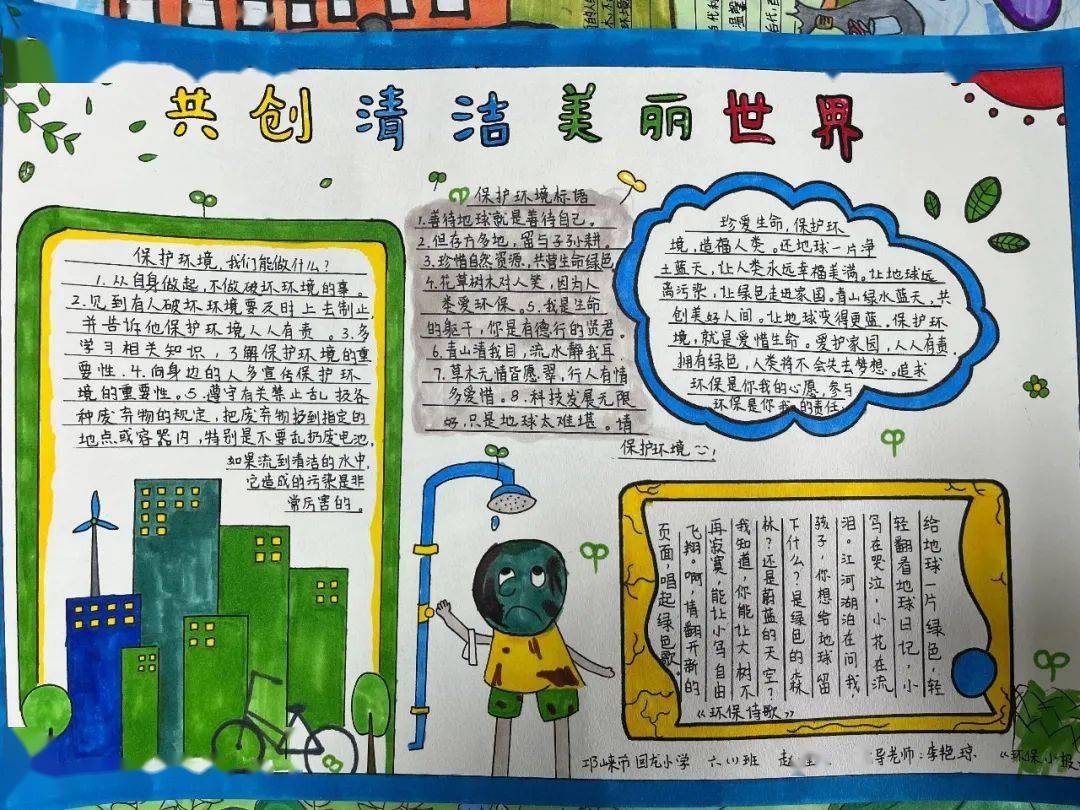 共创清洁美丽世界
保护环境，我们能做什么？
1.从自身做起，不做破坏环境的事。
2.见到有人破坏环境要及时上去制止，
并告诉他保护环境人人有责。3.多
学习相关知识，了解保护环境的重
要性.4.向身边的人多宣传保护环
境的重要性。5.遵守有关禁止乱扔各
种废弃物的规定，把废弃物扔到指定的
地点或容器内，特别是不要乱扔废电池，
如果流到清洁的水中，
它造成的污染是非
常厉害的。
保护环境标语
1.善待地球就是善待自己。
2.但存方多地，留与子孙耕。
3.珍惜自然资源，共营生命绿色
4.花草树木对人笑，因为人
类爱环保。5.我是生命
的躯干，你是有德行的贤君。
6.青山清我目，流水静我耳.
7.草木无情皆愿翠，行人有情
多爱惜。8.科技发展无限
好，只是地球太难堪。请
保护环境
珍爱生命，保护环
境，造福人类。还地球一片净
土蓝天，让人类永远幸福美满。让地球远
离污染，让绿色走进家园。青山绿水蓝天，共
创美好人间。让地球变得更蓝，保护环
境，就是爱惜生命。爱护家园，人人有责.
拥有绿色，人类将不会失去梦想。追求
环保是你我的心愿，参与
环保是你我的责任
给地球一片绿色，轻
轻翻看地球日记，小
鸟在哭泣，小花在流
泪。江河湖泊在问我
孩子，你想给地球留
下什么？是绿色的森
林？还是蔚蓝的天空？
我知道，你能让大树不
再寂寞，能让小鸟自由
飞翔。啊，情翻开新的
页面，唱起绿色歌。
《环保诗歌》
邛崃市回龙小学 六(1)班 赵 导老师：李艳琼 《环保小报